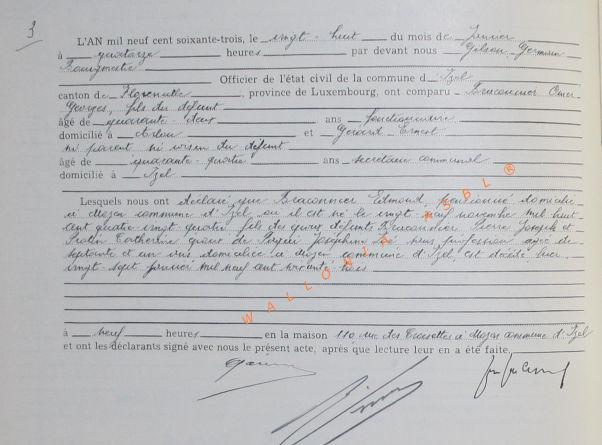 3
L'AN mil neuf cent soixante-trois, le vingt-huit du mois de Janvier
à quatorze heures par devant nous Gilson, Germain
Officier de l'état civil de la commune d' Izel
canton de Florenville, province de Luxembourg, ont comparu Braconnier Omer
Georges, fils du défunt
âgé de quarante-deux ans fonctionnaire
domicilié à Arlon et Gérard Ernest
ni parent ni voisin du défunt
âgé de quarante-quatre ans secrétaire communal
domicilié à Izel
Lesquels nous ont déclaré que Braconnier Edmond, pensionné domicilié
à Moyen commune d'Izel, où il est né le vingt-neuf novembre mil huit
cent quatre vingt quatre, fils de Braconnier Pierre Joseph et
Catherine Joséphine sans profession agée de
septante et un ans domiciliée à Moyen commune d'Izel, est décédé hier
vingt-sept janvier mil neuf cent soixante trois
WALLONIA ASBL ®
à neuf heures en la maison 110 rue des à Moyen commune d'Izel
et ont les déclarants signé avec nous le présent acte, après que lecture leur en a été faite